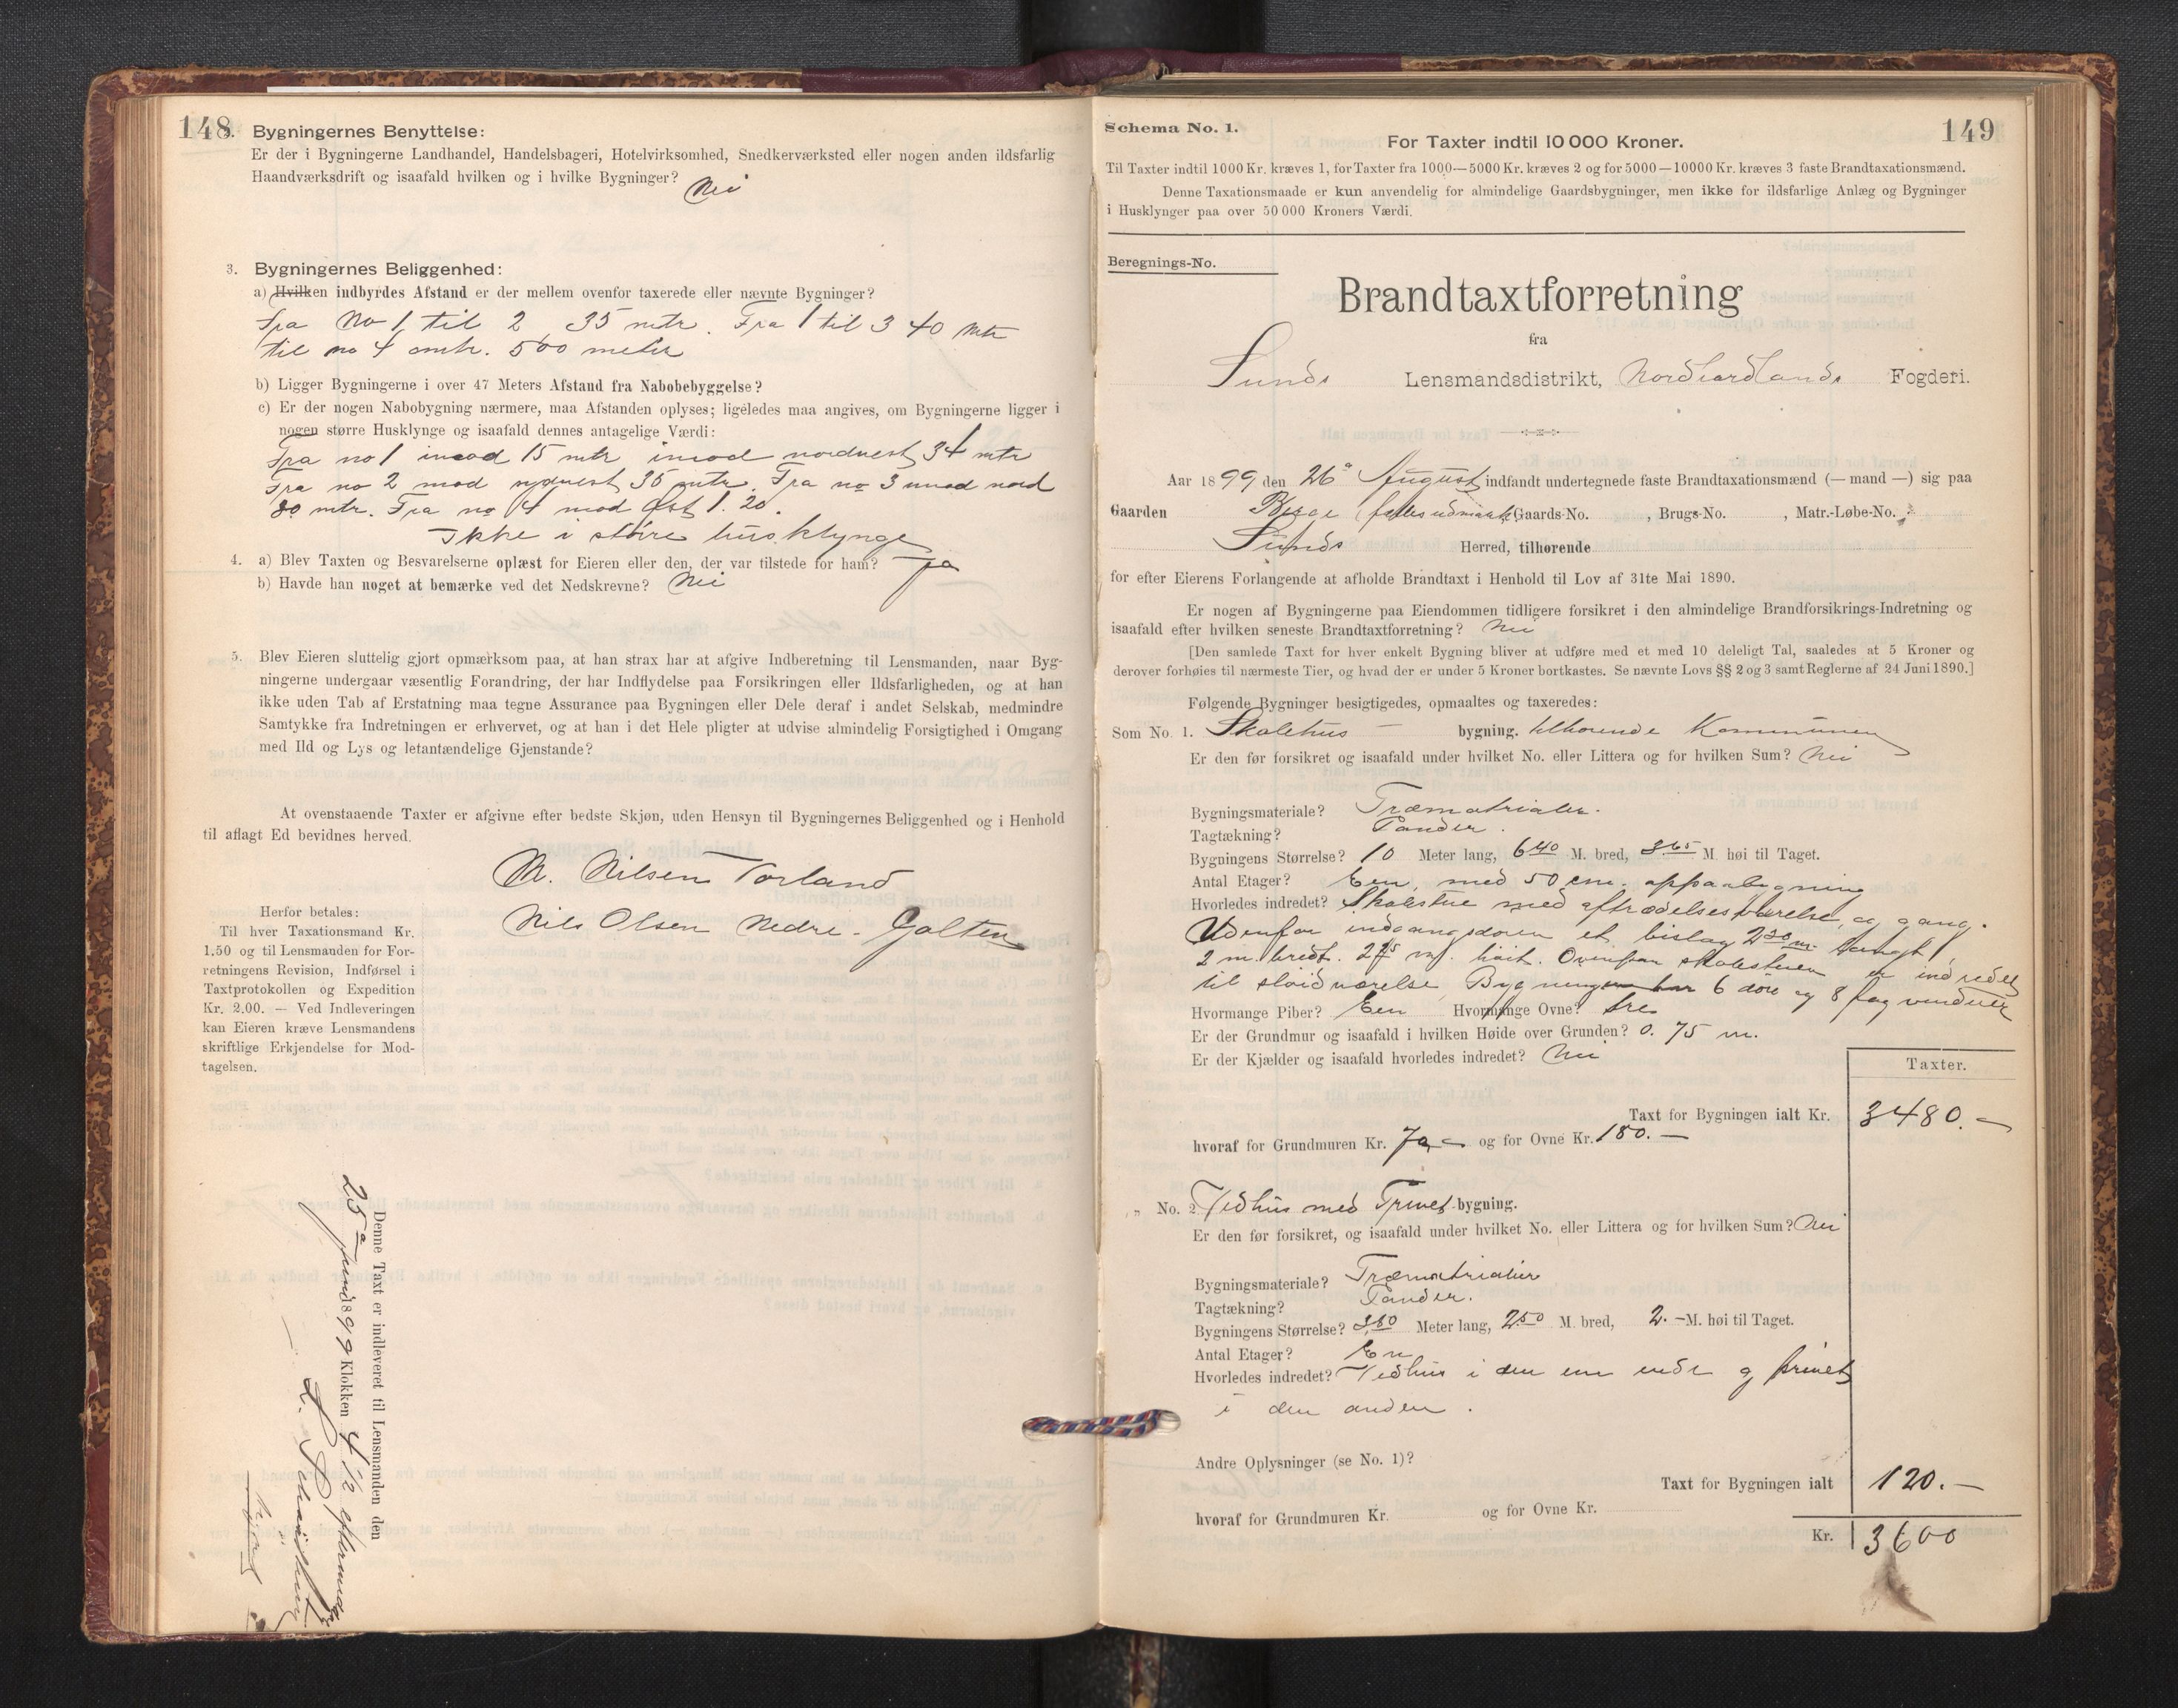 148
2. Bygningernes Benyttelse:
Er der i Bygningerne Landhandel, Handelsbageri, Hotelvirksomhed, Snedkerværksted eller nogen anden ildsfarlig
Haandværksdrift og isaafald hvilken og i hvilke Bygninger? Nei
3. Bygningernes Beliggenhed:
a) Hvilken indbyrdes Afstand er der mellem ovenfor taxerede eller nævnte Bygninger?
Fra No 1 til 2 35 mtr. Fra 1 til 3 40 mtr
til no 4 omtr. 500 meter
b) Ligger Bygningerne i over 47 Meters Afstand fra Nabobebyggelse?
c) Er der nogen Nabobygning nærmere, maa Afstanden oplyses; ligeledes maa angives, om Bygningerne ligger i
nogen større Husklynge og isaafald dennes antagelige Værdi:
Fra no 1 imod 15 mtr imod nordvest 34 mtr
Fra no 2 mod sydvest 35 mtr. Fra no 3 mod nord
80 mtr. Fra no 4 mod Øst 1.20.
Ikke i større husklynge
4. a) Blev Taxten og Besvarelserne oplæst for Eieren eller den, der var tilstede for ham? Ja
b) Havde han noget at bemærke ved det Nedskrevne? Nei
5. Blev Eieren sluttelig gjort opmærksom paa, at han strax har at afgive Indberetning til Lensmanden, naar Byg-
ningerne undergaar væsentlig Forandring, der har Indflydelse paa Forsikringen eller Ildsfarligheden, og at han
ikke uden Tab af Erstatning maa tegne Assurance paa Bygningen eller Dele deraf i andet Selskab, medmindre
Samtykke fra Indretningen er erhvervet, og at han i det Hele pligter at udvise almindelig Forsigtighed i Omgang
med Ild og Lys og letantændelige Gjenstande?
At ovenstaaende Taxter er afgivne efter bedste Skjøn, uden Hensyn til Bygningernes Beliggenhed og i Henhold
til aflagt Ed bevidnes herved.
M. Nilsen Torland
Nils Olsen Nedre-Golten
Herfor betales:
Til hver Taxationsmand Kr.
1.50 og til Lensmanden for For-
retningens Revision, Indførsel i
Taxtprotokollen og Expedition
Kr. 2.00. — Ved Indleveringen
kan Eieren kræve Lensmandens
skriftlige Erkjendelse for Mod-
tagelsen.
Denne Taxt er indleveret til Lensmanden den
25 1899 Klokken 4 1/2 eftermid
149
Schema No. 1.
For Taxter indtil 10 000 Kroner.
Til Taxter indtil 1000 Kr. kræves 1, for Taxter fra 1000—5000 Kr. kræves 2 og for 5000—10000 Kr. kræves 3 faste Brandtaxationsmænd.
Denne Taxationsmaade er kun anvendelig for almindelige Gaardsbygninger, men ikke for ildsfarlige Anlæg og Bygninger
i Husklynger paa over 50 000 Kroners Værdi.
Beregnings-No.
Brandtaxtforretning
fra
Sunds Lensmandsdistrikt, Nordhordlands Fogderi.
Aar 1899 den 26 August indfandt undertegnede faste Brandtaxationsmænd (— mand —) sig paa
Gaarden Berge fælles udmark, Gaards-No. , Brugs-No. , Matr.-Løbe-No.
Sunds Herred, tilhørende
for efter Eierens Forlangende at afholde Brandtaxt i Henhold til Lov af 31te Mai 1890.
Er nogen af Bygningerne paa Eiendommen tidligere forsikret i den almindelige Brandforsikrings-Indretning og
isaafald efter hvilken seneste Brandtaxtforretning? Nei
[Den samlede Taxt for hver enkelt Bygning bliver at udføre med et med 10 deleligt Tal, saaledes at 5 Kroner og
derover forhøies til nærmeste Tier, og hvad der er under 5 Kroner bortkastes. Se nævnte Lovs §§ 2 og 3 samt Reglerne af 24 Juni 1890.]
Følgende Bygninger besigtigedes, opmaaltes og taxeredes:
Som No. 1. Skolehus bygning. tilhørende Kommunen
Er den før forsikret og isaafald under hvilket No. eller Littera og for hvilken Sum? Nei
Bygningsmateriale? Træmatrialer.
Tagtækning? Pander.
Bygningens Størrelse? 10 Meter lang, 6 40 M. bred, 3.65 M. høi til Taget.
Antal Etager? Een, med 50 cm. oppaabygning
Hvorledes indredet? Skolestue med aftrædelsesværelse og gang.
Udenfor indgangsdøren et bislag 2 20 m. langt,
2 m. bredt. 2 75 m. høit. Ovenfor skolestuen er indredet
til sløidværelse Bygningen har 6 døre og 8 fag vinduer
Hvormange Piber? Een Hvormange Ovne? tre
Er der Grundmur og isaafald i hvilken Høide over Grunden? 0.75 m.
Er der Kjælder og isaafald hvorledes indredet? Nei
Taxter.
Taxt for Bygningen ialt Kr. 3480.—
hvoraf for Grundmuren Kr. 70 — og for Ovne Kr. 180.—
" No. 2 Vedhus med Privet bygning.
Er den før forsikret, og isaafald under hvilket No. eller Littera og for hvilken Sum? Nei
Bygningsmateriale? Træmatrialier
Tagtækning? Pander.
Bygningens Størrelse? 3.80 Meter lang, 2.50 M. bred, 2.— M. høi til Taget.
Antal Etager? En
Hvorledes indredet? Vedhus i den ene ende og privet
i den anden.
Andre Oplysninger (se No. 1)?
Taxt for Bygningen ialt 120.—
hvoraf for Grundmuren Kr. og for Ovne Kr.
Kr. 3600